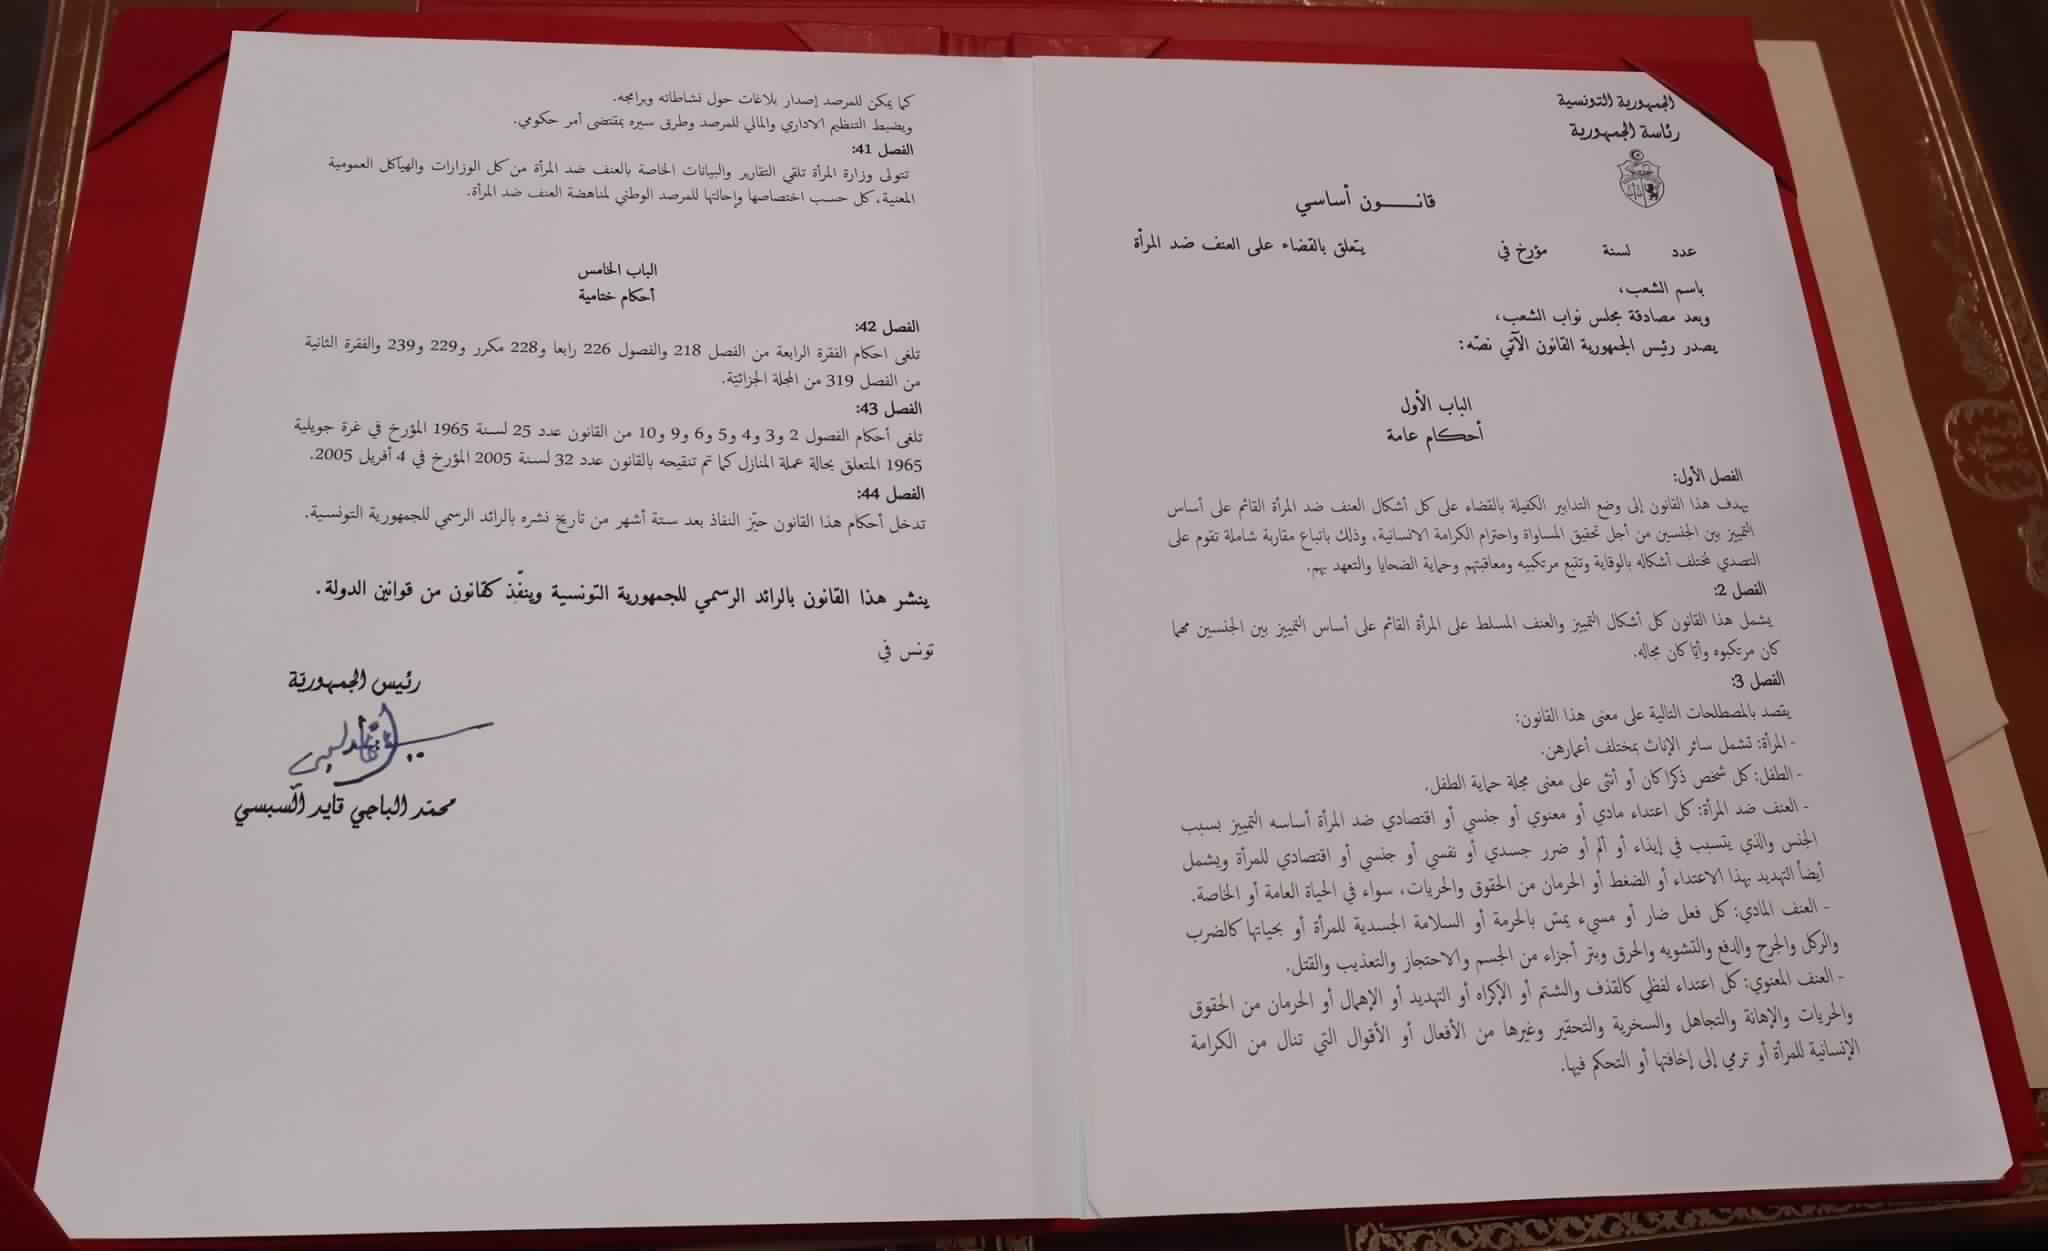 الجمهورية التونسية
رئاسة الجمهورية
قانـــــون أساسي
عدد لسنة مؤرخ في يتعلق بالقضاء على العنف ضد المرأة
باسم الشعب،
وبعد مصادقة مجلس نواب الشعب،
يصدر رئيس الجمهورية القانون الآتي نصّه:
الباب الأول
أحكام عامة
الفصل الأول:
يهدف هذا القانون إلى وضع التدابير الكفيلة بالقضاء على كل أشكال العنف ضد المرأة القائم على أساس
التمييز بين الجنسين من أجل تحقيق المساواة واحترام الكرامة الانسانية، وذلك باتباع مقاربة شاملة تقوم على
التصدي لمختلف أشكاله بالوقاية وتتبع مرتكبيه ومعاقبتهم وحماية الضحايا والتعهد بهم.
الفصل 2:
يشمل هذا القانون كل أشكال التمييز والعنف المسلط على المرأة القائم على أساس التمييز بين الجنسين مهما
كان مرتكبوه وأيّا كان مجاله.
الفصل 3:
يقصد بالمصطلحات التالية على معنى هذا القانون:
- المرأة: تشمل سائر الإناث بمختلف أعمارهن.
- الطفل: كل شخص ذكرا كان أو أنثى على معنى مجلة حماية الطفل.
- العنف ضد المرأة: كل اعتداء مادي أو معنوي أو جنسي أو اقتصادي ضد المرأة أساسه التمييز بسبب
الجنس والذي يتسبب في إيذاء أو ألم أو ضرر جسدي أو نفسي أو جنسي أو اقتصادي للمرأة ويشمل
أيضاً التهديد بهذا الاعتداء أو الضغط أو الحرمان من الحقوق والحريات، سواء في الحياة العامة أو الخاصة.
- العنف المادي: كل فعل ضار أو مسيء يمسّ بالحرمة أو السلامة الجسدية للمرأة أو بحياتها كالضرب
والركل والجرح والدفع والتشويه والحرق وبتر أجزاء من الجسم والاحتجاز والتعذيب والقتل.
- العنف المعنوي: كل اعتداء لفظي كالقذف والشتم أو الإكراه أو التهديد أو الإهمال أو الحرمان من الحقوق
والحريات والإهانة والتجاهل والسخرية والتحقير وغيرها من الأفعال أو الأقوال التي تنال من الكرامة
الإنسانية للمرأة أو ترمي إلى إخافتها أو التحكم فيها.
كما يمكن للمرصد إصدار بلاغات حول نشاطاته وبرامجه.
ويضبط التنظيم الاداري والمالي للمرصد وطرق سيره بمقتضى أمر حكومي.
الفصل 41:
تتولى وزارة المرأة تلقي التقارير والبيانات الخاصة بالعنف ضد المرأة من كل الوزارات والهياكل العمومية
المعنية، كل حسب اختصاصها وإحالتها للمرصد الوطني لمناهضة العنف ضد المرأة.
الباب الخامس
أحكام ختامية
الفصل 42:
تلغى احكام الفقرة الرابعة من الفصل 218 والفصول 226 رابعا و228 مكرر و229 و239 والفقرة الثانية
من الفصل 319 من المجلة الجزائيّة.
الفصل 43:
تلغى أحكام الفصول 2 و3 و4 و5 و6 و9 و10 من القانون عدد 25 لسنة 1965 المؤرخ في غرة جويلية
1965 المتعلق بحالة عملة المنازل كما تم تنقيحه بالقانون عدد 32 لسنة 2005 المؤرخ في 4 أفريل 2005.
الفصل 44:
تدخل أحكام هذا القانون حيّز النفاذ بعد ستة أشهر من تاريخ نشره بالرائد الرسمي للجمهورية التونسية.
ينشر هذا القانون بالرائد الرسمي للجمهورية التونسية وينفّذ كقانون من قوانين الدولة.
تونس في
رئيس الجمهوريّة
محمّد الباجي قايد السّبسي